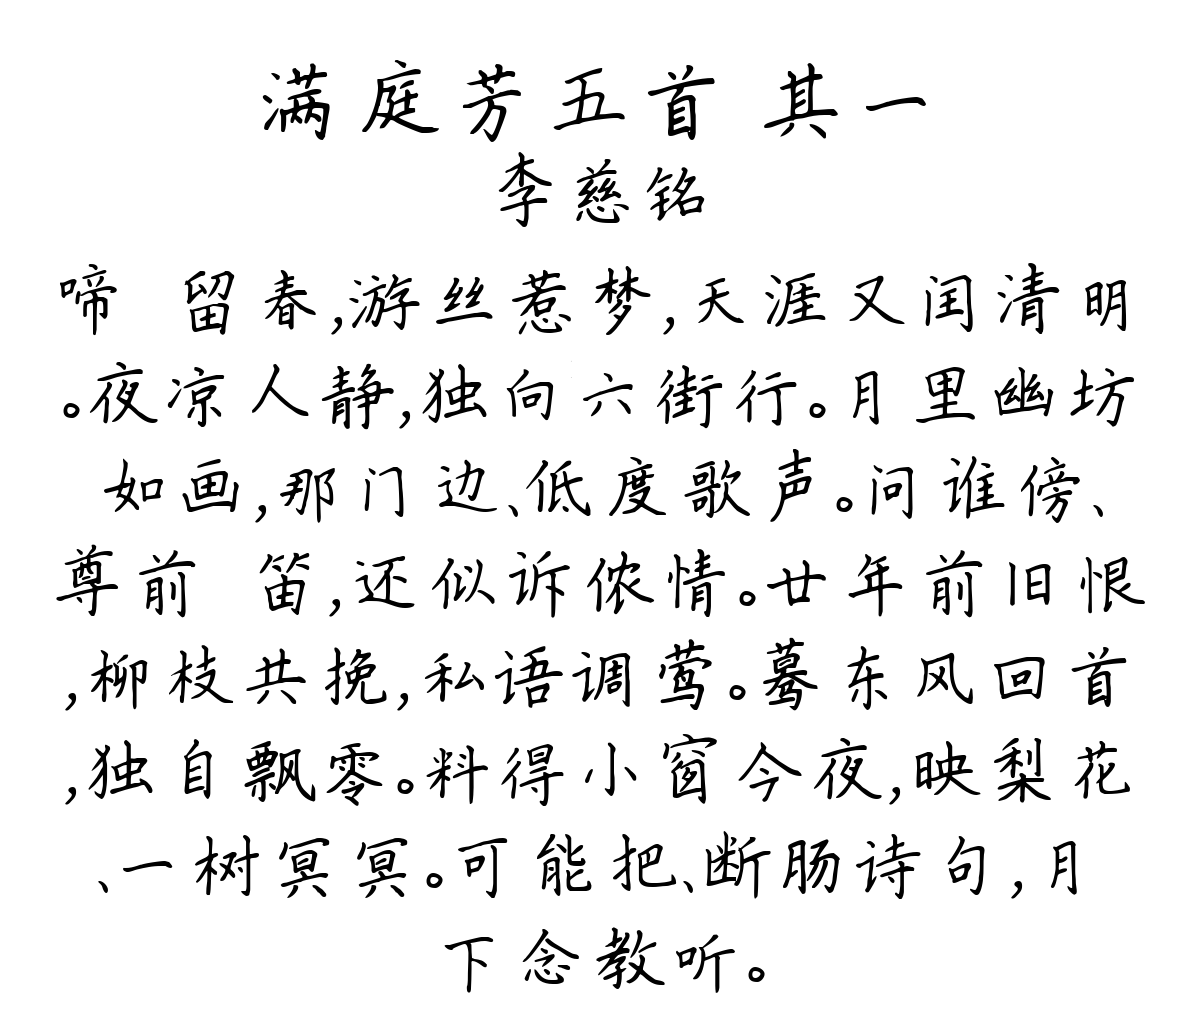 满庭芳五首 其一
李慈铭
啼 留春,游丝惹梦,天涯又闰清明
。夜凉人静,独向六街行。月里幽坊
如画,那门边、低度歌声。问谁傍、
尊前 笛,还似诉侬情。廿年前旧恨
,柳枝共挽,私语调莺。蓦东风回首
,独自飘零。料得小窗今夜,映梨花
、一树冥冥。可能把、断肠诗句,月
下念教听。